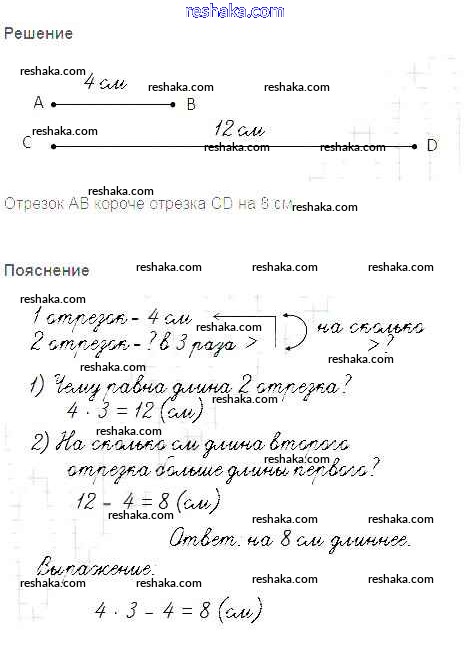 reshaka.com
Решение
reshaka.com
4 см
reshaka.com
reshaka.com
A
B
reshaka.com
12 см
C
reshaka.com
reshaka.com
D
reshaka.com
Отрезок АВ короче отрезка CD на 8 см
reshaka.com
Пояснение
reshaka.com
reshaka.com
reshaka.com
reshaka.com
1 отрезок - 4 см
reshaka.com
на сколько
2 отрезок - ? в 3 раза >
> ?
reshaka.com
1) Чему равна длина 2 отрезка?
reshaka.com
4 · 3 = 12 (см)
reshaka.com
2) На сколько см длина второго
reshaka.com
отрезка больше длины первого?
12 - 4 = 8 (см)
reshaka.com
reshaka.com
reshaka.com
Ответ: на 8 см длиннее.
Выражение:
reshaka.com
reshaka.com
reshaka.com
4 · 3 - 4 = 8 (см)